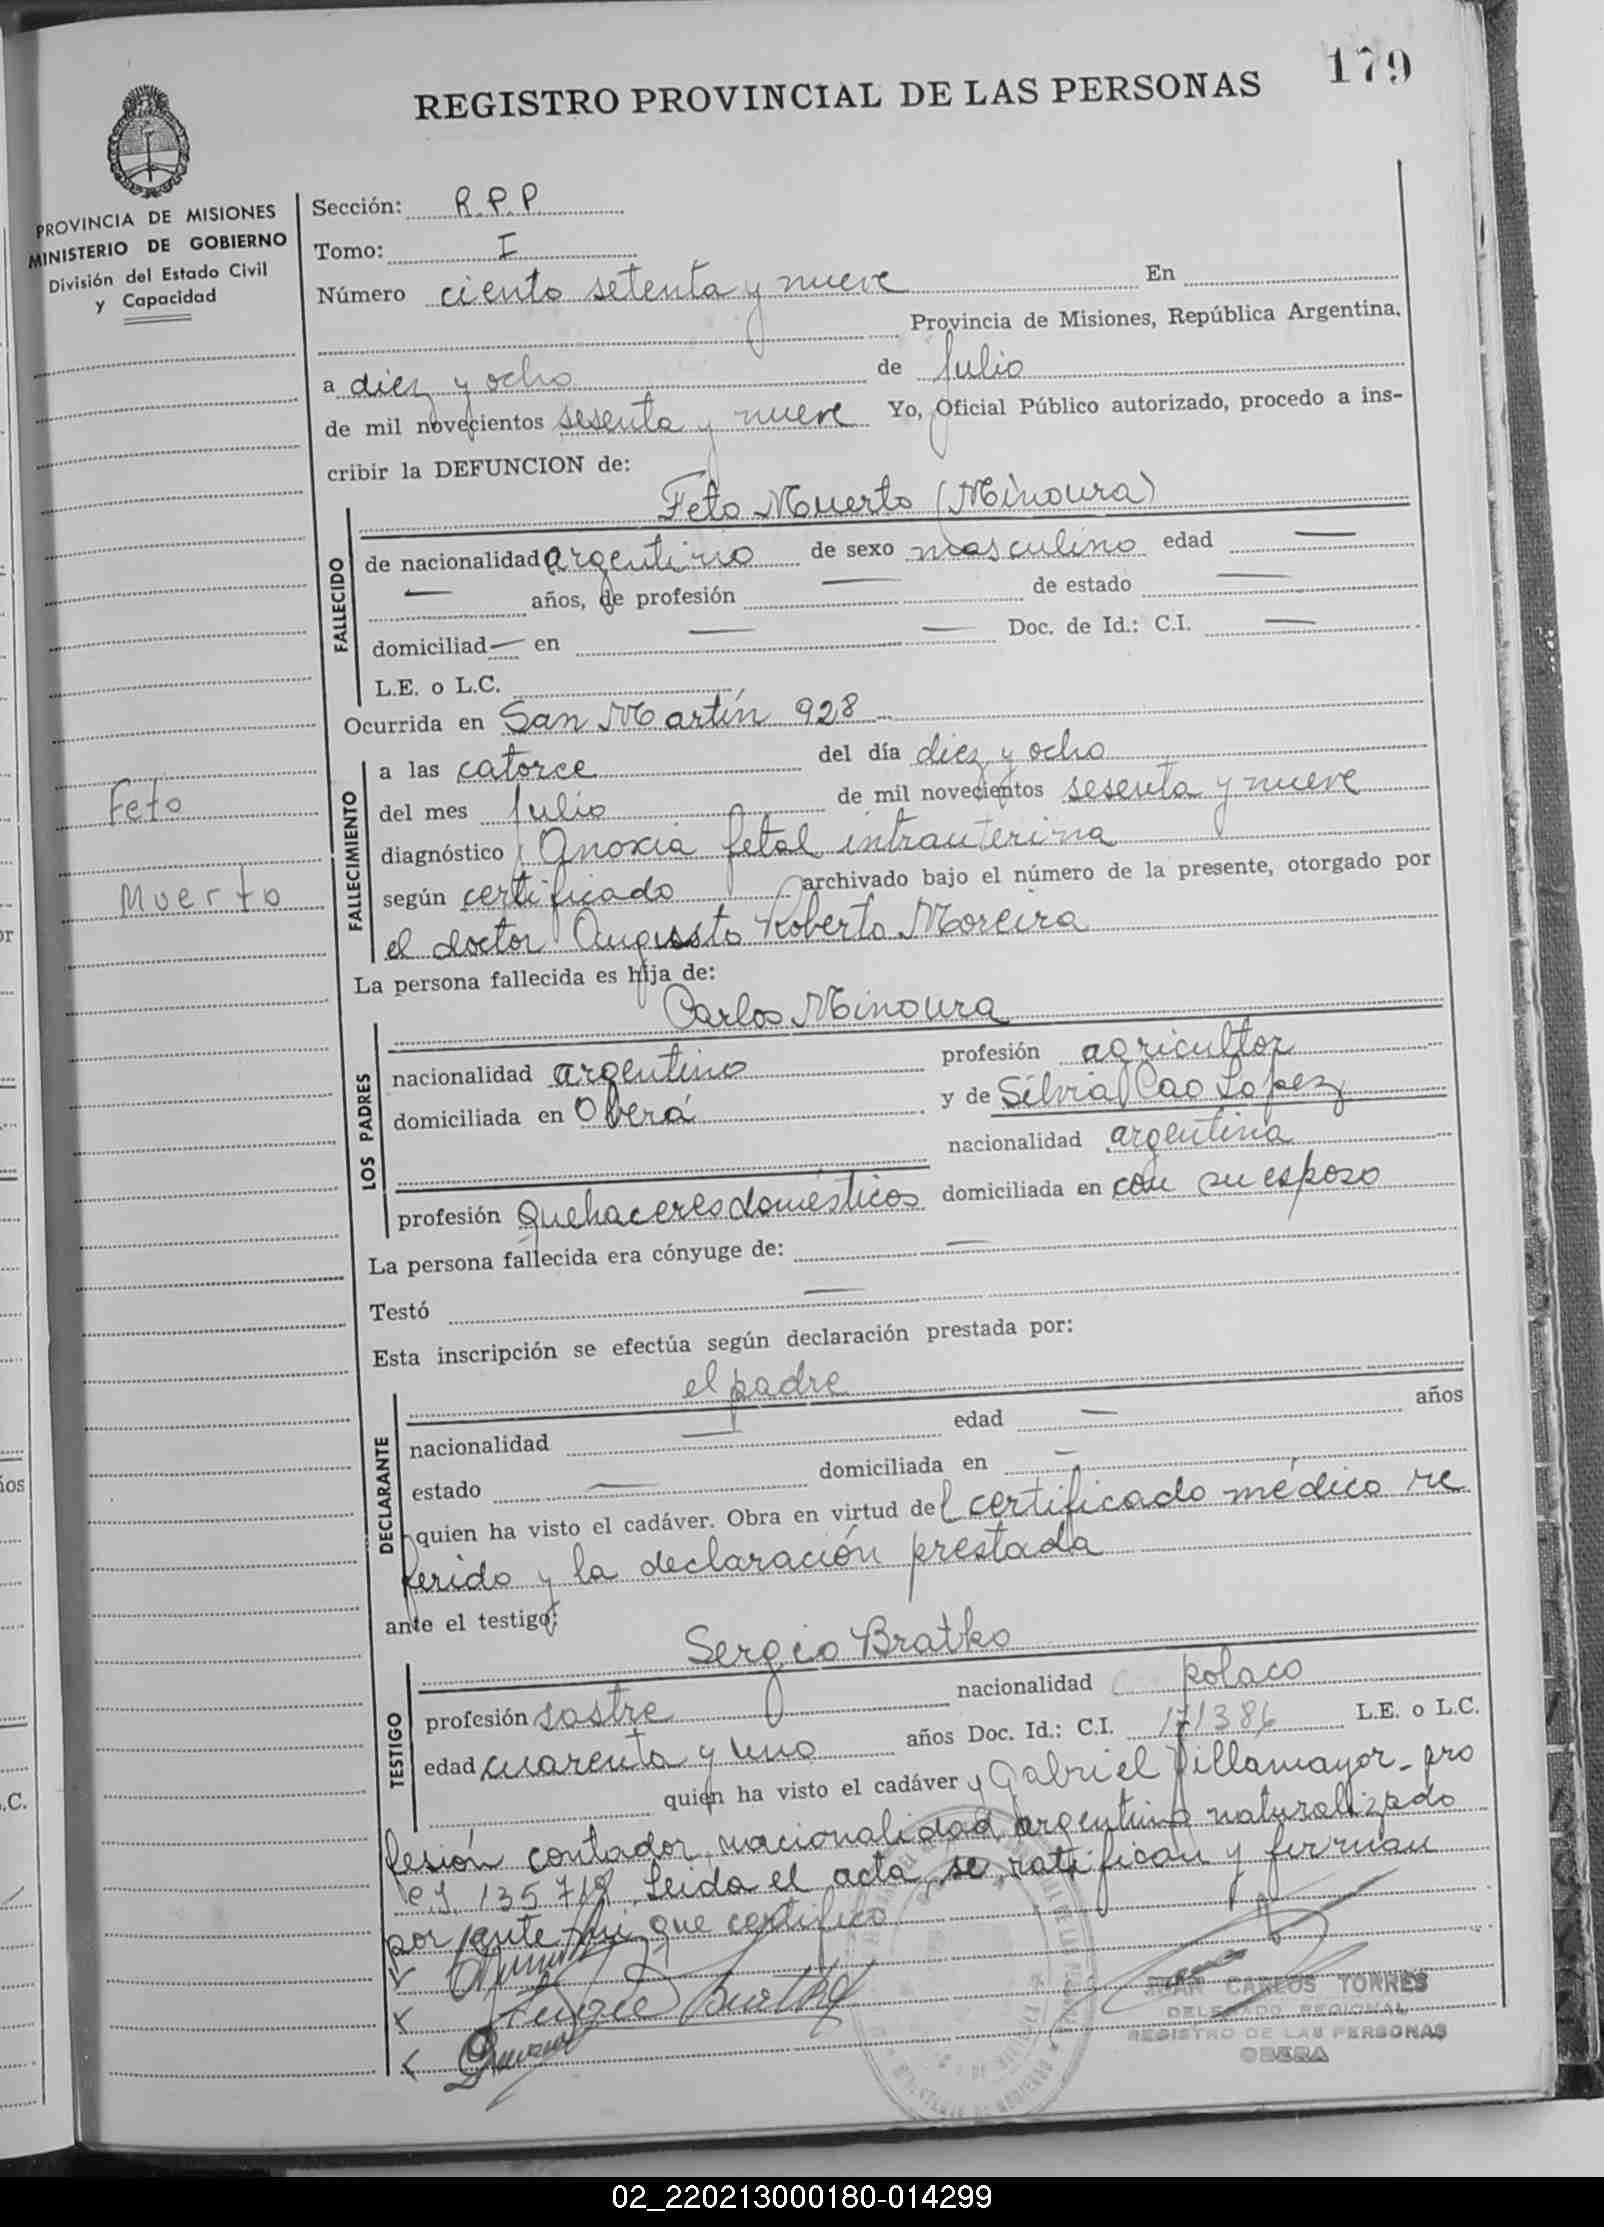 179
REGISTRO PROVINCIAL DE LAS PERSONAS
PROVINCIA DE MISIONES
MINISTERIO DE GOBIERNO
División del Estado Civil
y Capacidad
Feto
Muerto
Sección: R.P.P
Tomo: I
Número ciento setenta y nueve En
Provincia de Misiones, República Argentina,
a diez y ocho de Julio
de mil novecientos sesenta y nueve Yo, Oficial Público autorizado, procedo a ins-
cribir la DEFUNCION de:
Feto Muerto (Minoura)
FALLECIDO
de nacionalidad argentino de sexo masculino edad —
— años, de profesión — de estado —
domiciliad— en — — Doc. de Id.: C.I. —
L.E. o L.C.
Ocurrida en San Martín 928
FALLECIMIENTO
a las catorce del día diez y ocho
del mes julio de mil novecientos sesenta y nueve
diagnóstico Anoxia fetal intrauterina
según certificado archivado bajo el número de la presente, otorgado por
el doctor Augusto Roberto Moreira
La persona fallecida es hija de:
Carlos Minoura
LOS PADRES
nacionalidad argentino profesión agricultor
domiciliada en Oberá y de Silvia Cao Lopez
nacionalidad argentina
profesión quehaceres domésticos domiciliada en con su esposo
La persona fallecida era cónyuge de: —
Testó —
Esta inscripción se efectúa según declaración prestada por:
el padre
DECLARANTE
nacionalidad — edad — años
estado — domiciliada en —
quien ha visto el cadáver. Obra en virtud del certificado médico re
ferido y la declaración prestada
ante el testigo:
Sergio Bratko
TESTIGO
profesión sastre nacionalidad polaco
edad cuarenta y uno años Doc. Id.: C.I. 171386 L.E. o L.C.
quien ha visto el cadáver y Gabriel Villamayor- pro
fesión contador, nacionalidad argentino naturalizado
Leida el acta, se ratifican y firman
por ante mi que certifico
JUAN CARLOS TORRES
DELEGADO REGIONAL
REGISTRO DE LAS PERSONAS
OBERA
02_220213000180-014299